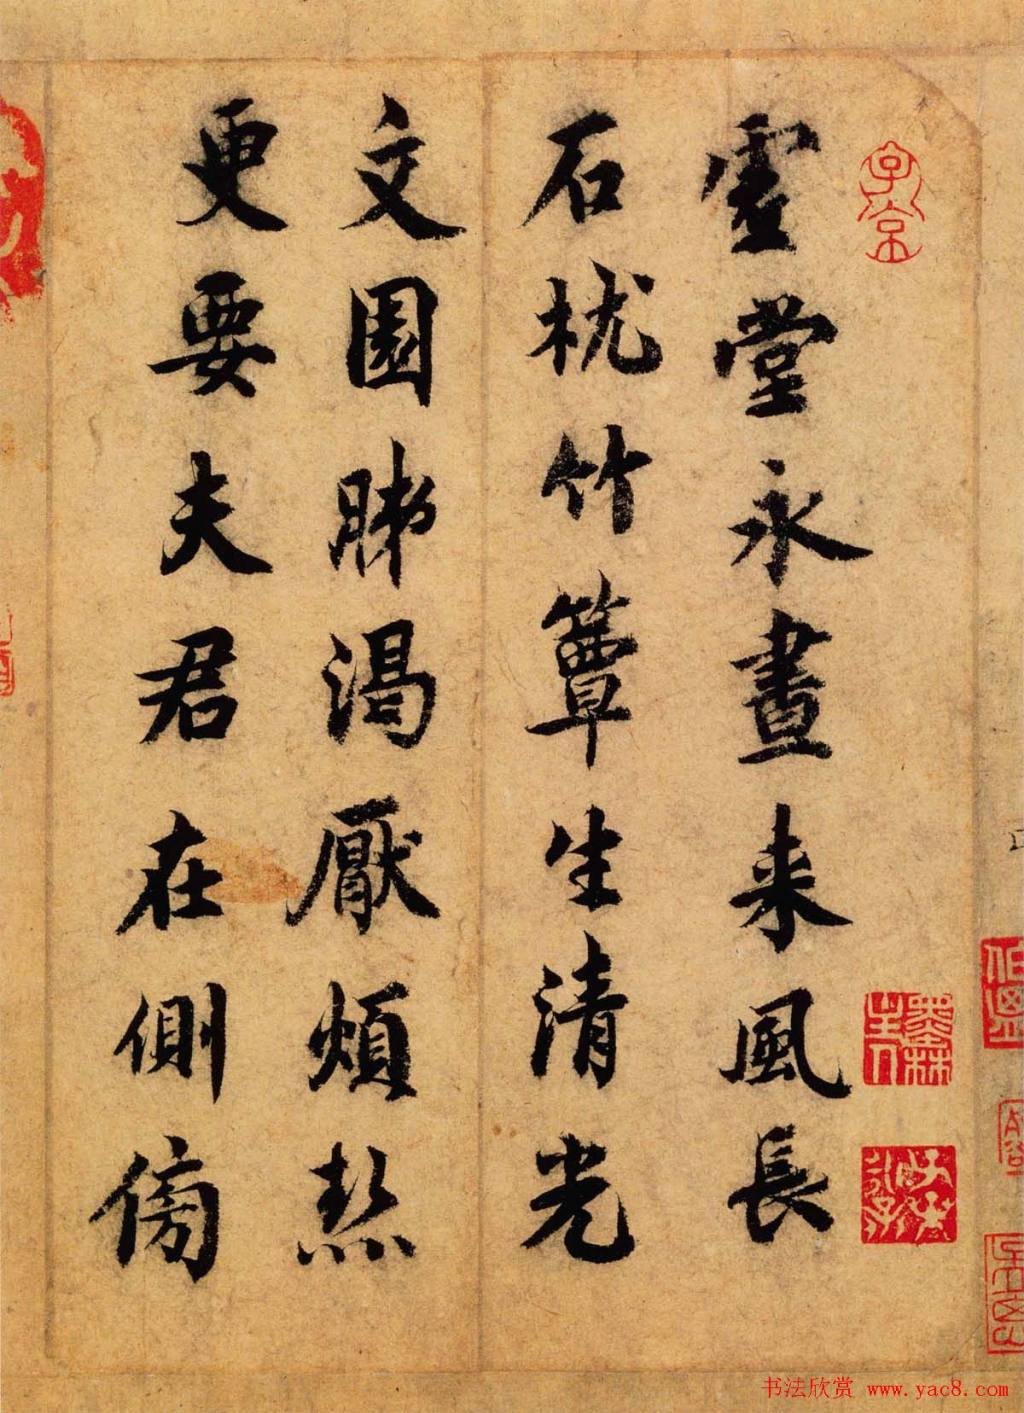 虚堂永晝来風長
石枕竹簟生清光
文園肺渴厭煩熱
更要夫君在側傍
子京
书法欣赏 www.yac8.com